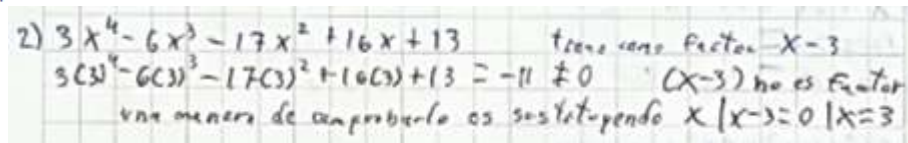 2) 3x⁴ - 6x³ - 17x² + 16x + 13 tiene como factor x-3
3(3)⁴ - 6(3)³ - 17(3)² + 16(3) + 13 = -11 ≠ 0 (x-3) no es factor
una manera de comprobarlo es sustituyendo x | x-3=0 | x=3